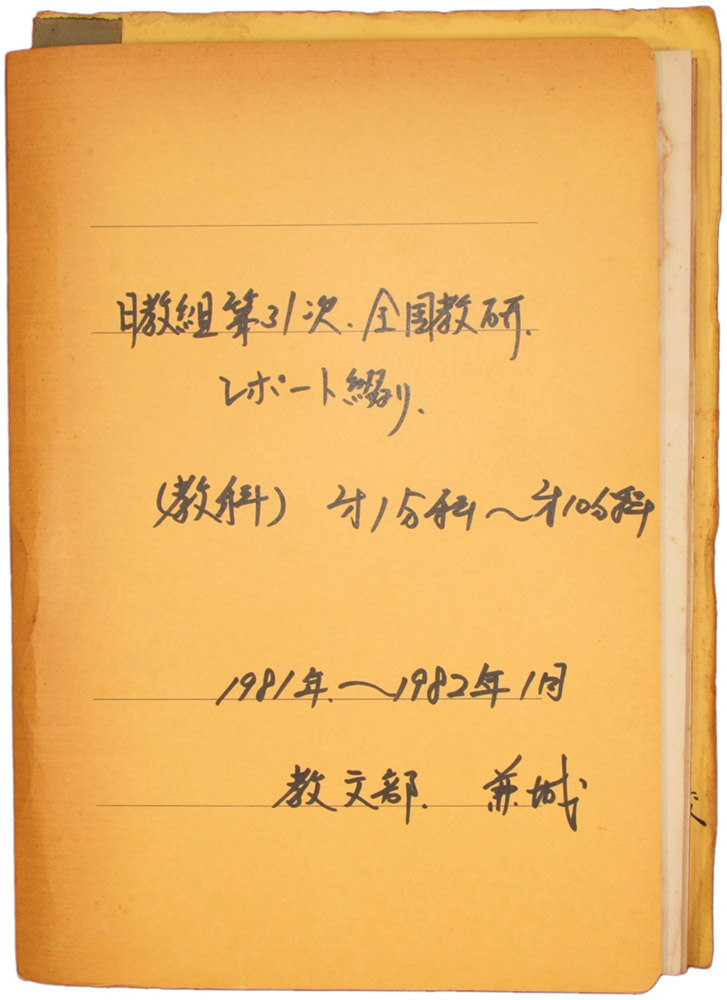 日教組第31次.全国教研.
レポート綴り.
(教科) 才1分科～才10分科
1981年.～1982年1月
教文部. 兼城